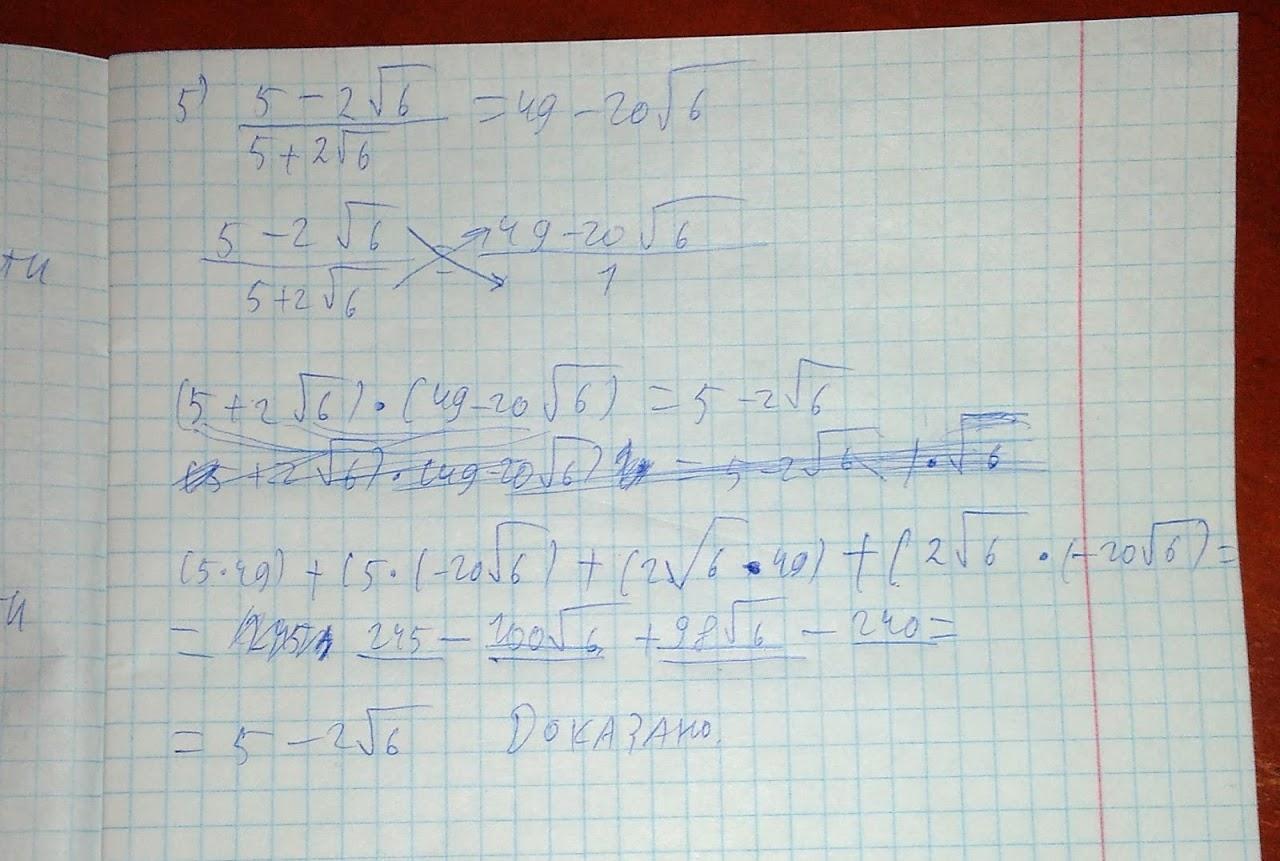 5) (5 - 2√6)/(5 + 2√6) = 49 - 20√6
(5 - 2√6)/(5 + 2√6) = (49 - 20√6)/1
(5 + 2√6) · (49 - 20√6) = 5 - 2√6
(5 · 49) + (5 · (-20√6) + (2√6 · 49) + (2√6 · (-20√6) =
= 245 - 100√6 + 98√6 - 240 =
= 5 - 2√6 Доказано.